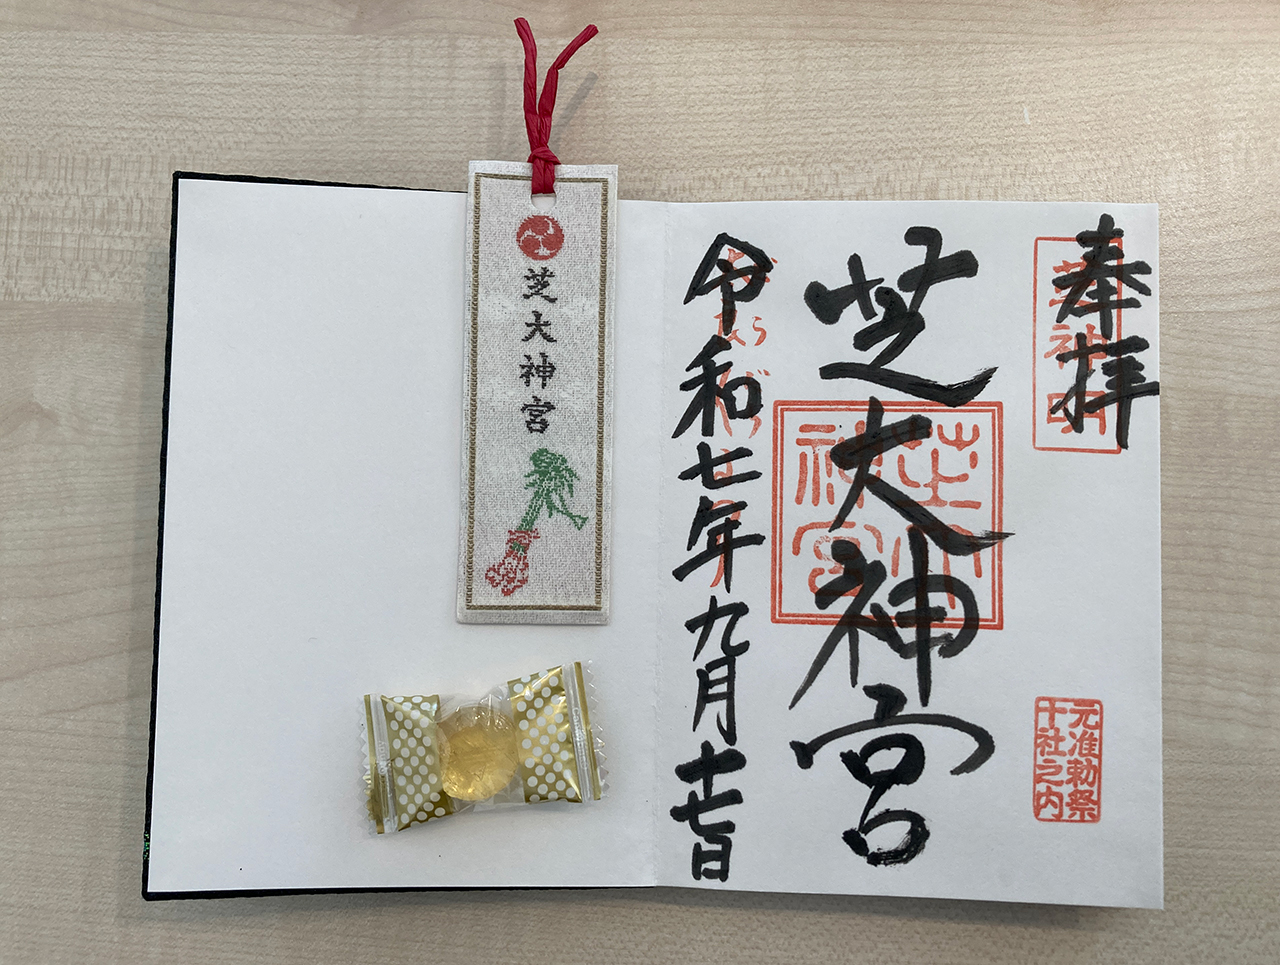 奉拝
芝神明
元准勅祭
十社之内
芝大神宮
芝大
神宮
令和七年九月十七日
芝大神宮